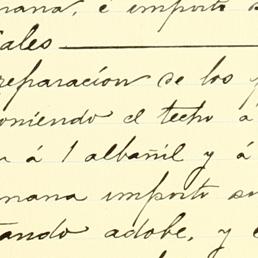 mana, é importó s
iales
reparación de los p
oniendo el techo a
á 1 albañil y á
mana importó su
tando adobe, y e